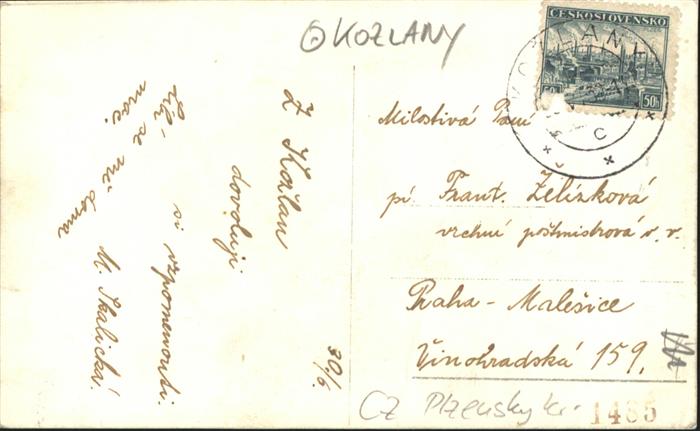 ⊙ KOZLANY
ČESKOSLOVENSKO
50h 50h
KOŽLANY
C
Z Kožlan
dovoluji
si vzpomenouti.
Líbí se mi doma
moc.
M. Skalická.
30/6.
Milostivá Paní
pí Frant. Želízková
vrchní poštmistrová v. v.
Praha - Malešice
Vinohradská 159.
CZ Plzensky kr.
1485